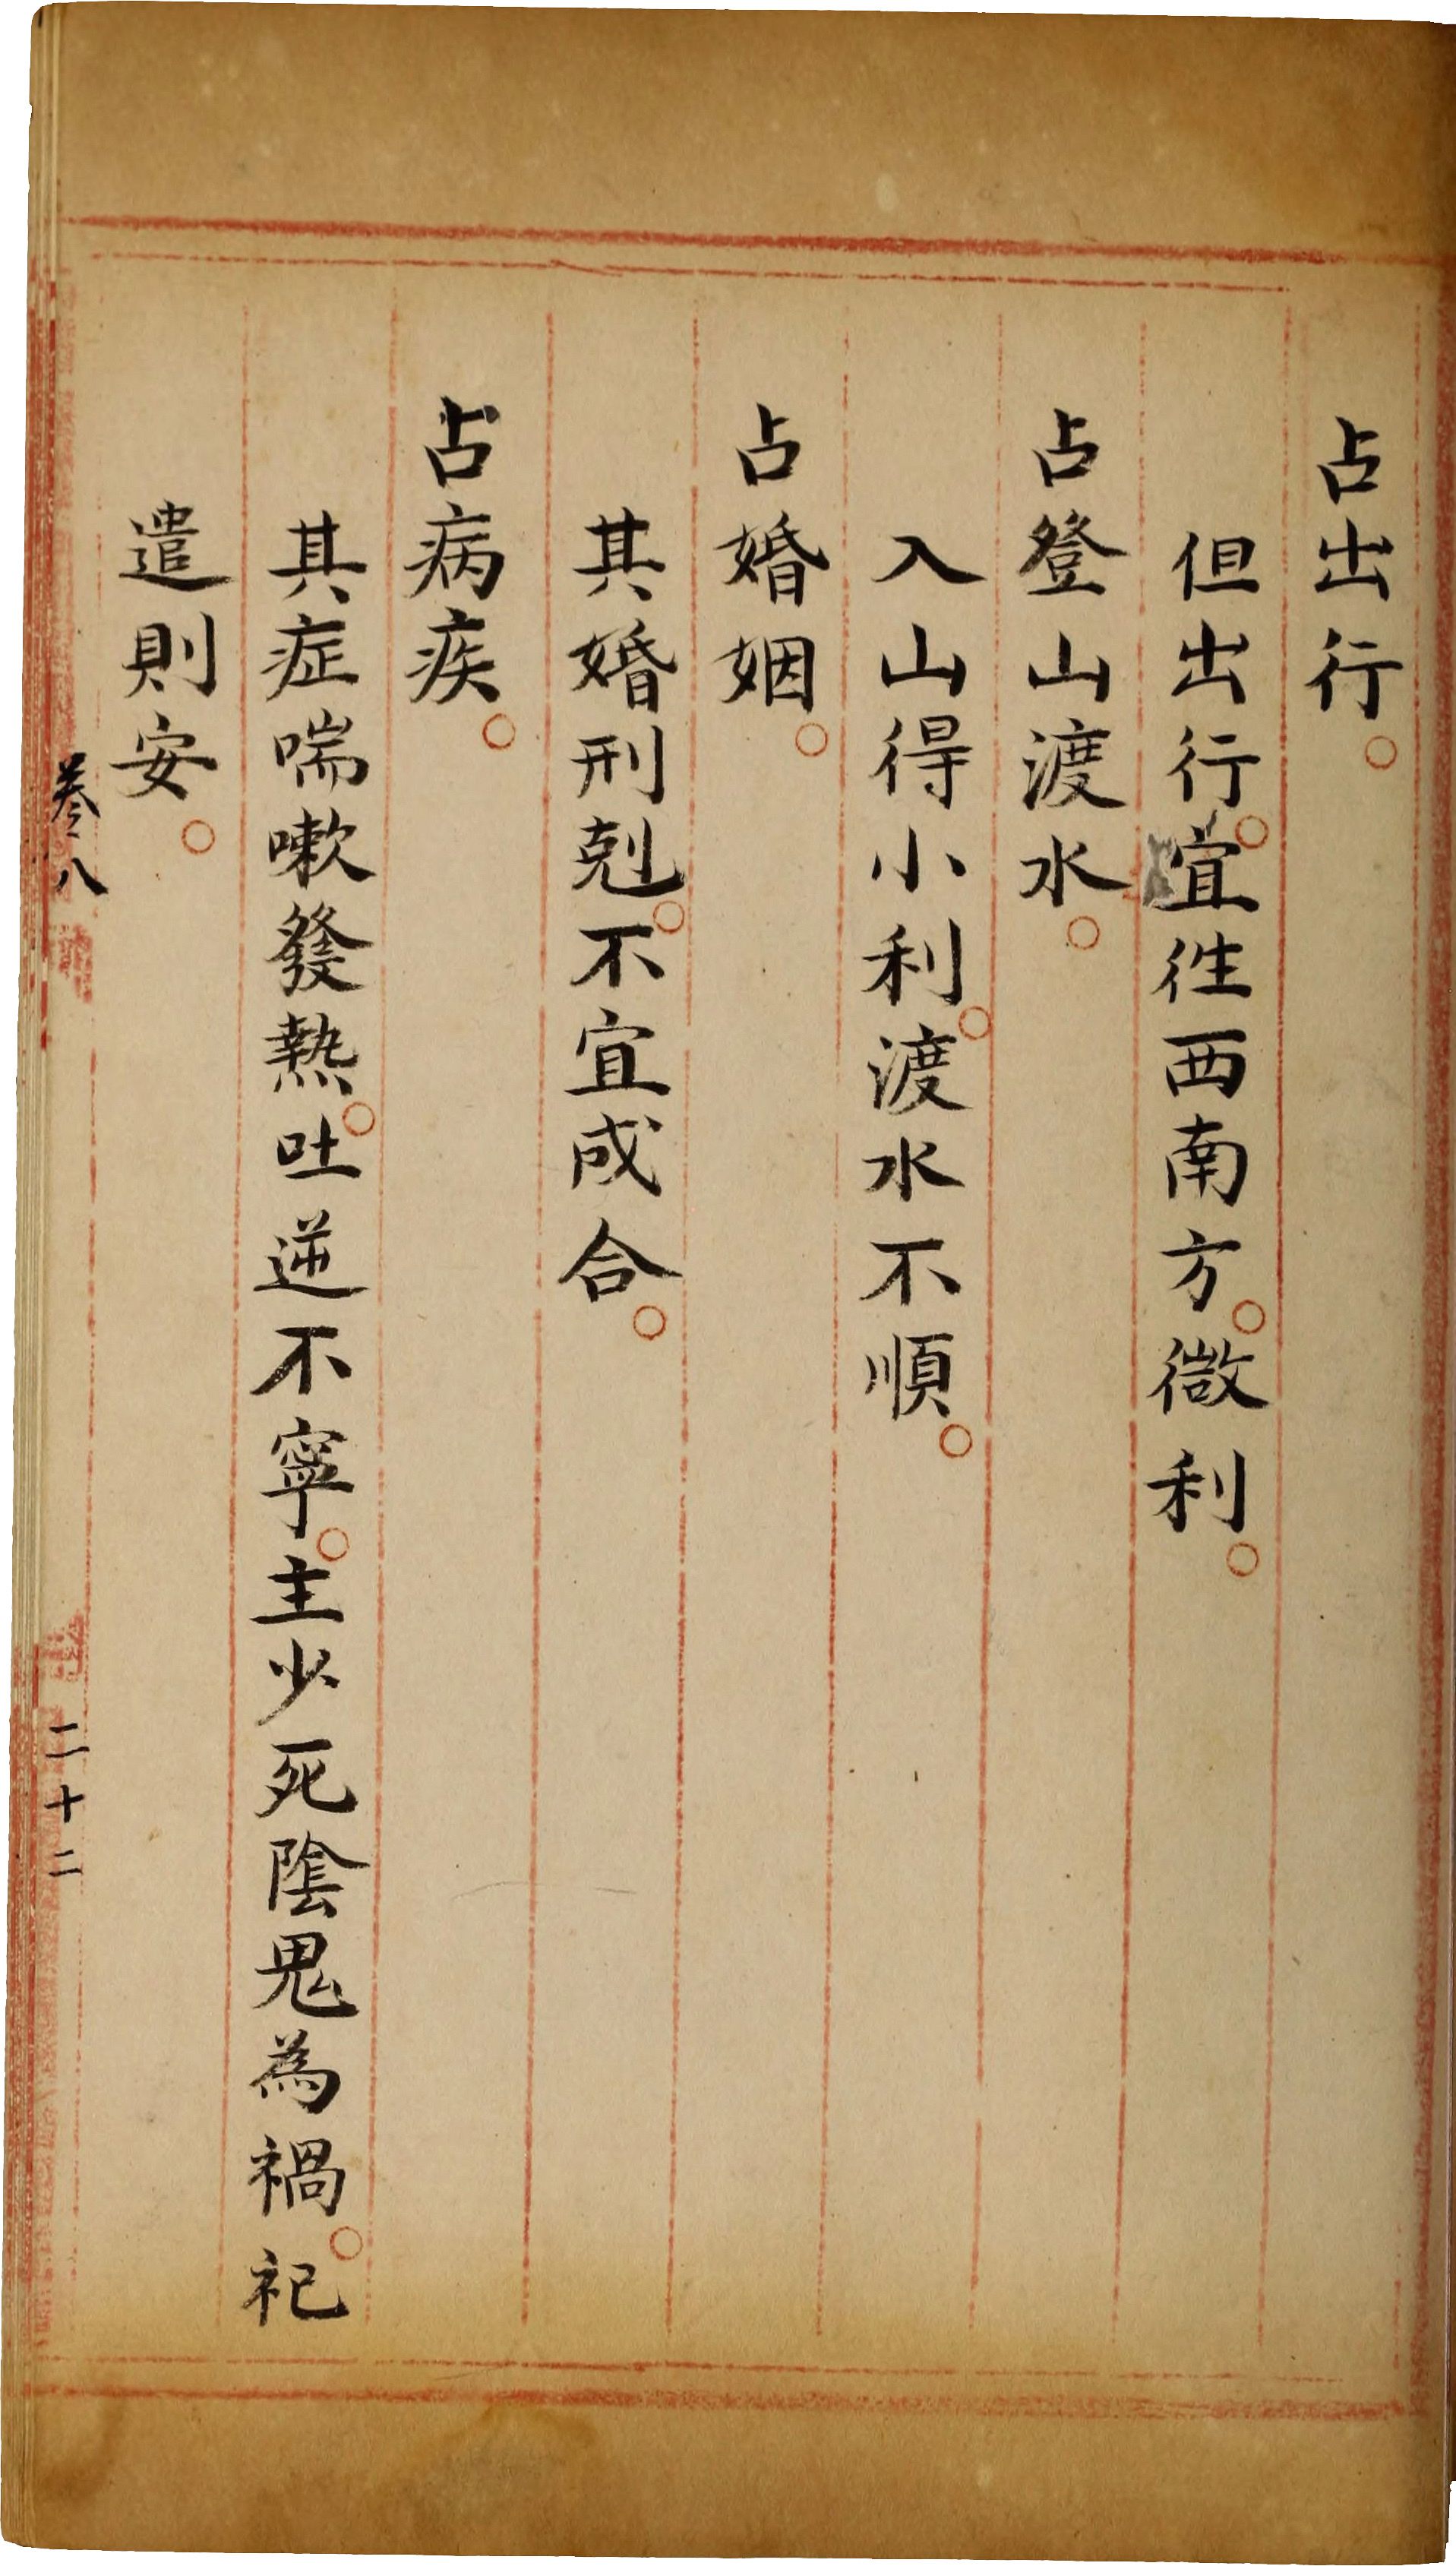 占出行。
但出行。宜徃西南方。微利。
占登山渡水。
入山得小利。渡水不順。
占婚姻。
其婚刑剋。不宜成合。
占病疾。
其症喘嗽發熱。吐逆不寧。主少死陰鬼為禍。祀
遣則安。
卷八
二十二